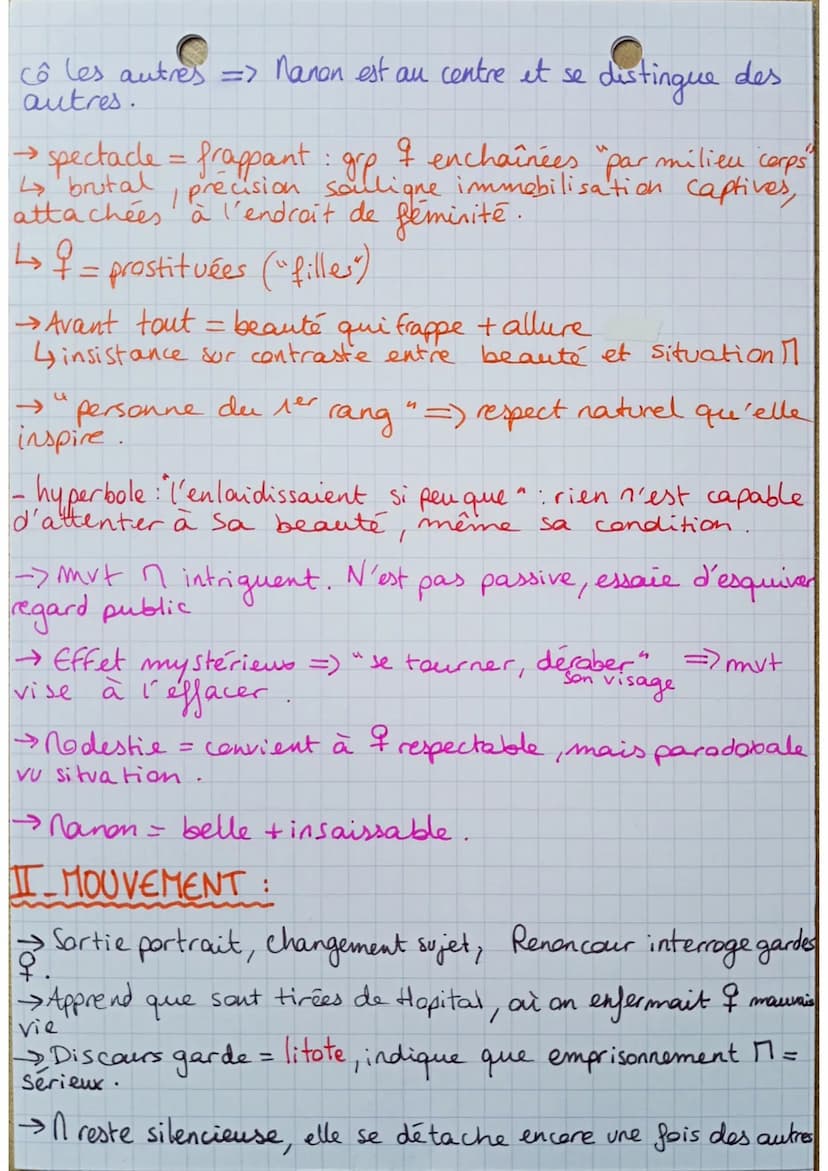 cô les autres => Manon est au centre et se distingue des
autres.
→ spectacle = frappant : grp ♀ enchaînées "par milieu corps"
↳ brutal, précision souligne immobilisation captives,
attachées à l'endroit de féminité.
↳ ♀ = prostituées ("filles")
→ Avant tout = beauté qui frappe + allure
↳ insistance sur contraste entre beauté et situation M
→ "personne du 1er rang" => respect naturel qu'elle
inspire.
- hyperbole : "l'enlaidissaient si peu que" : rien n'est capable
d'attenter à sa beauté, même sa condition.
→ mvt M intriguent. N'est pas passive, essaie d'esquiver
regard public
→ Effet mystérieux => "se tourner, dérober" => mvt
son visage
vise à l'effacer.
→ Modestie = convient à ♀ respectable, mais paradoxale
vu situation.
→ Manon = belle + insaissable.
II - MOUVEMENT :
→ Sortie portrait, changement sujet, Renoncour interroge gardes
♀.
→ Apprend que sont tirées de Hopital, où on enfermait ♀ mauvais
vie
→ Discours garde = litote, indique que emprisonnement M =
sérieux.
→ M reste silencieuse, elle se détache encore une fois des autres